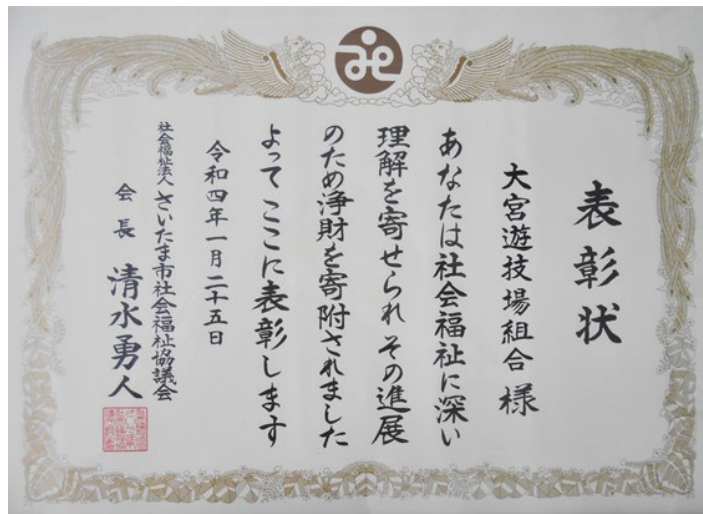 表彰状
大宮遊技場組合 様
あなたは社会福祉に深い
理解を寄せられ その進展
のため浄財を寄附されました
よって ここに表彰します
令和四年一月二十五日
社会福祉法人 さいたま市社会福祉協議会
会長 清水勇人